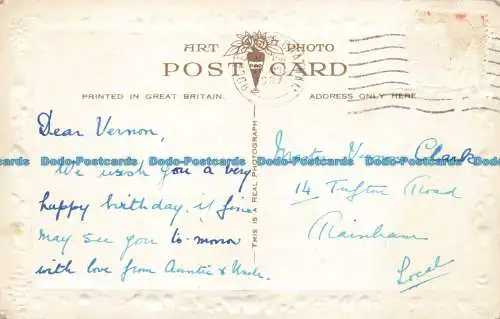 ART PHOTO
POST CARD
PRINTED IN GREAT BRITAIN.
ADDRESS ONLY HERE
THIS IS A REAL PHOTOGRAPH
Dear Vernon,
We wish you a very
happy birthday, if fine
may see you to-morrow
with love from Auntie & Uncle.
Clark
14 Tufton Road
Rainham
Local
Dodo-Postcards Dodo-Postcards Dodo-Postcards Dodo-Postcards Dodo-Postcards